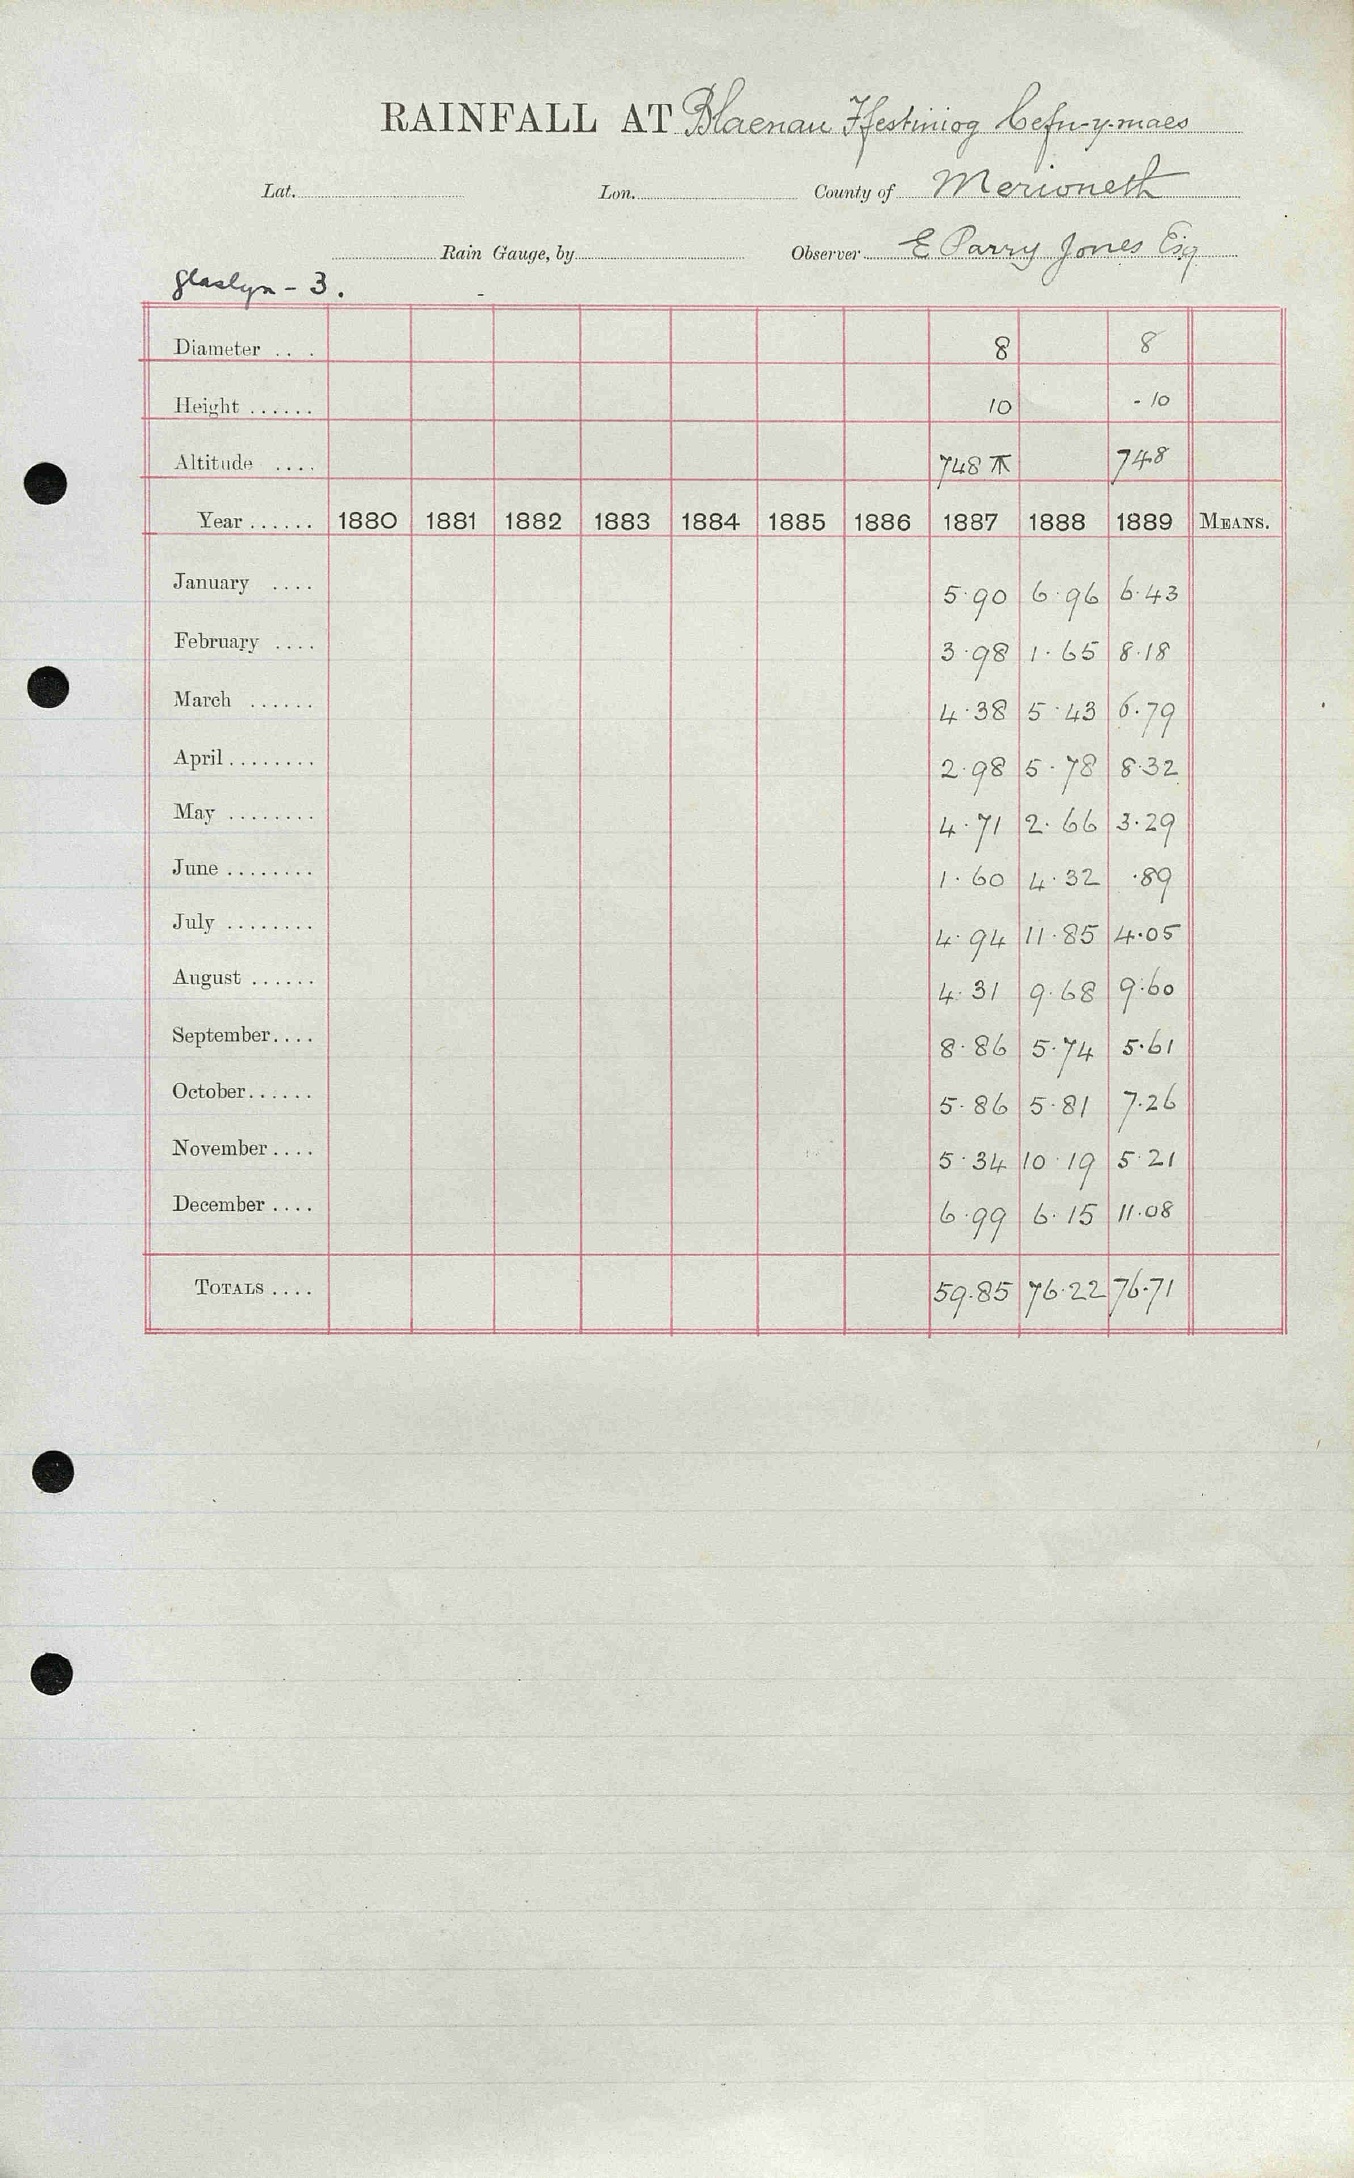 RAINFALL AT Blaenau Ffestiniog Cefn-y-maes
Lat. Lon. County of Merioneth
Rain Gauge, by Observer E Parry Jones Esq
Glaslyn - 3.
Diameter .. . 8 8
Height ...... 10 - 10
Altitude .... 748 748
Year ...... 1880 1881 1882 1883 1884 1885 1886 1887 1888 1889 MEANS.
January .... 5.90 6.96 6.43
February .... 3.98 1.65 8.18
March ...... 4.38 5.43 6.79
April ........ 2.98 5.78 8.32
May ........ 4.71 2.66 3.29
June ........ 1.60 4.32 .89
July ........ 4.94 11.85 4.05
August ...... 4.31 9.68 9.60
September .... 8.86 5.74 5.61
October ...... 5.86 5.81 7.26
November .... 5.34 10.19 5.21
December .... 6.99 6.15 11.08
TOTALS .... 59.85 76.22 76.71